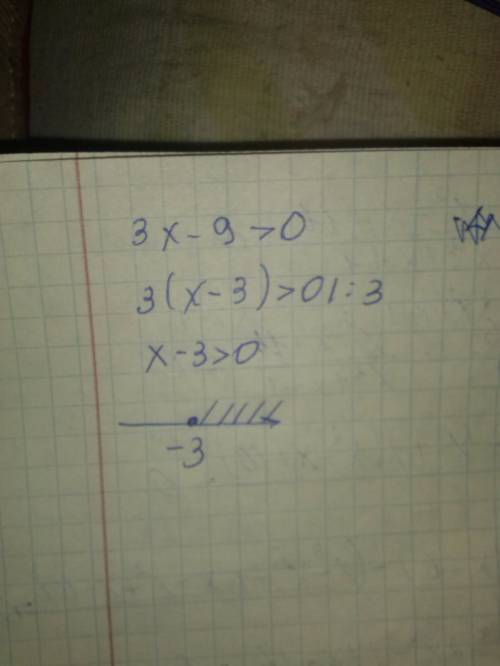 3x-9>0
3(x-3)>0|:3
x-3>0
-3